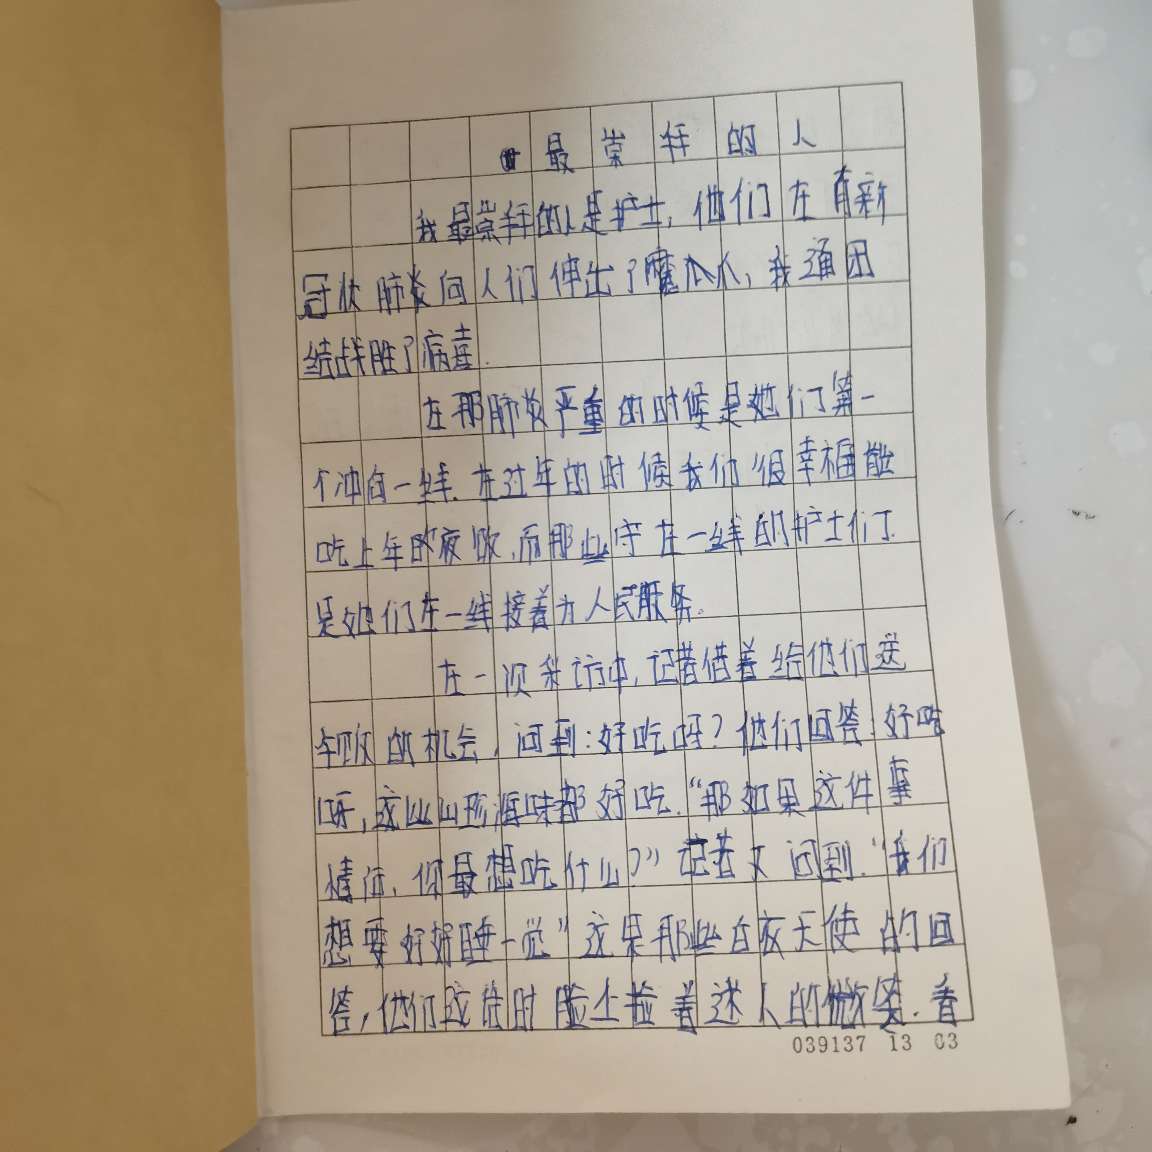 最崇拜的人
我最崇拜的人是护士，他们在有新
冠状肺炎向人们伸出了魔爪爪，我通团
结战胜了病毒.
在那肺炎严重的时候是她们第一
个冲向一线.在过年的时候我们很幸福能
吃上年的夜饭.而那些守在一线的护士们
是她们在一线接着为人民服务.
在一次采访中,记者借着给他们送
午饭的机会,问到:好吃吗?他们回答:好吃
呀,这些山珍海味都好吃."那如果这件事
情后,你最想吃什么?"记者又问到."我们
想要好好睡一觉"这是那些白衣天使的回
答,他们这话时脸上拉着迷人的微笑.看
039137 13 03